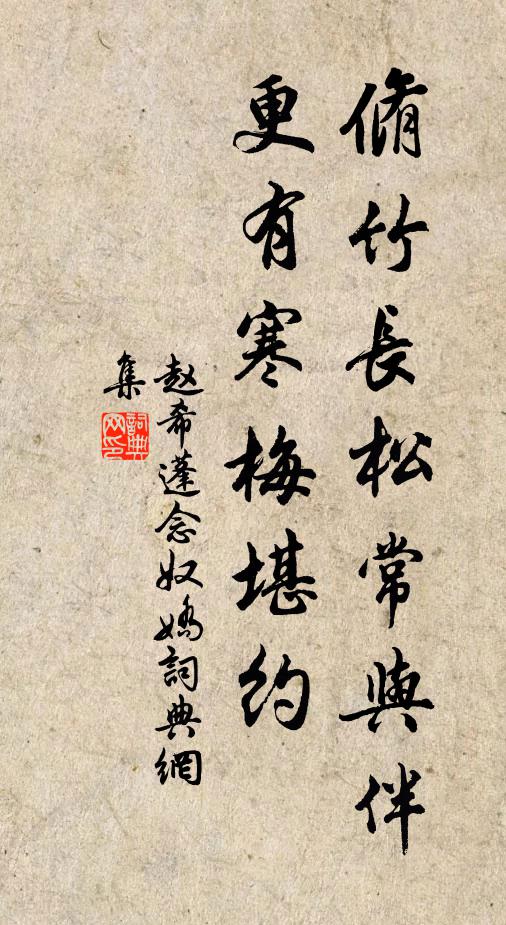 脩竹長松常與伴
更有寒梅堪約
赵希蓬念奴嬌詞典網
集
詞典網印